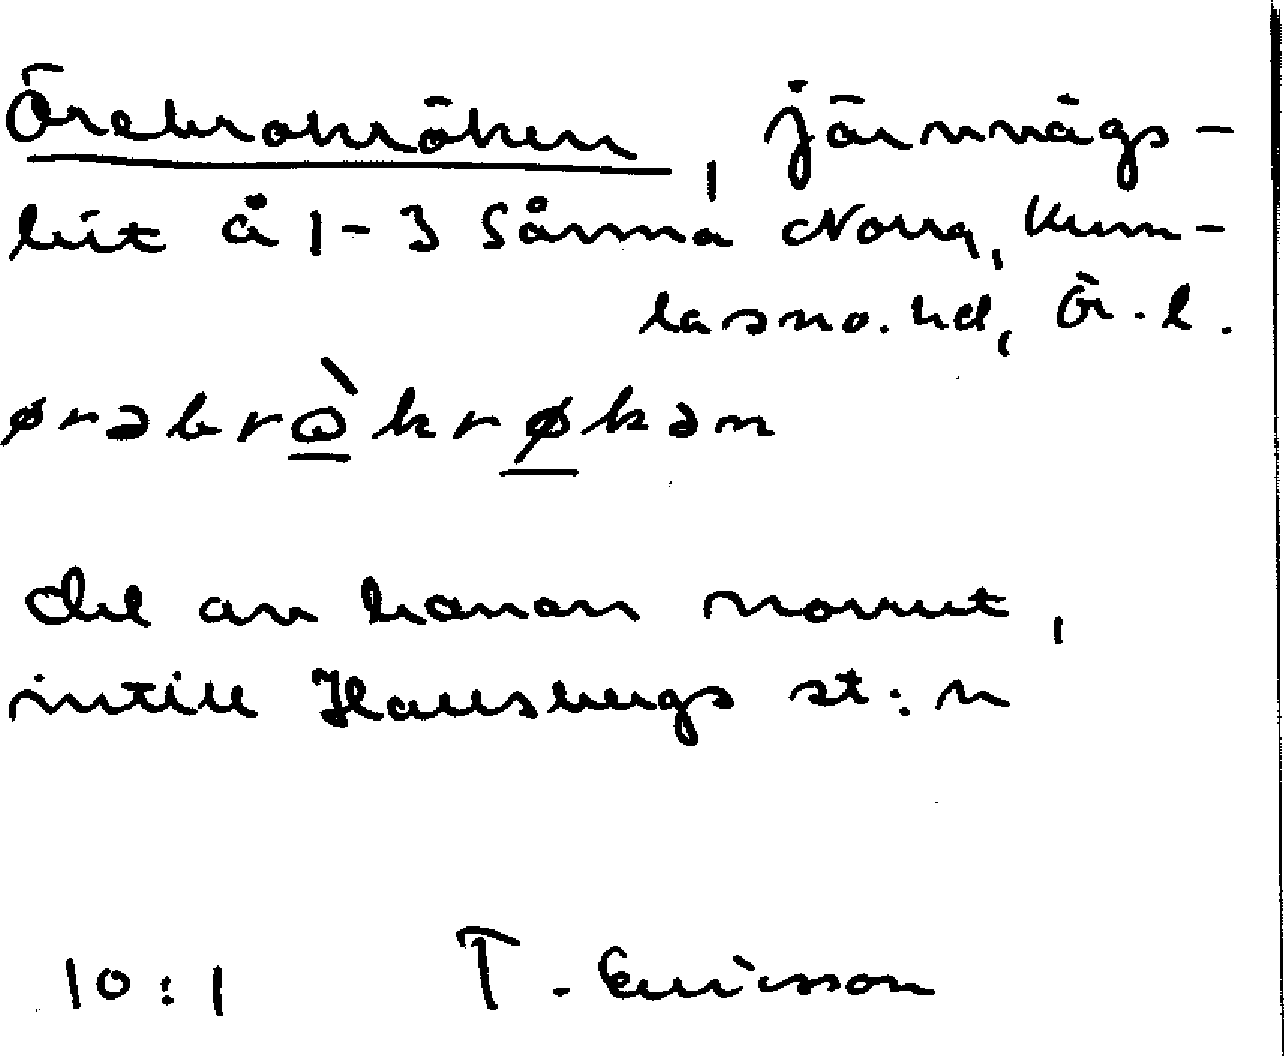 Örebrokröken, järnvägs-
bit å 1-3 Sånna Norra, Kum-
la sno. hd, Ör. l.
ørəbrὼkrøkən
del av banan norrut,
intill Hallsbergs st:n
10:1 T. Ericsson